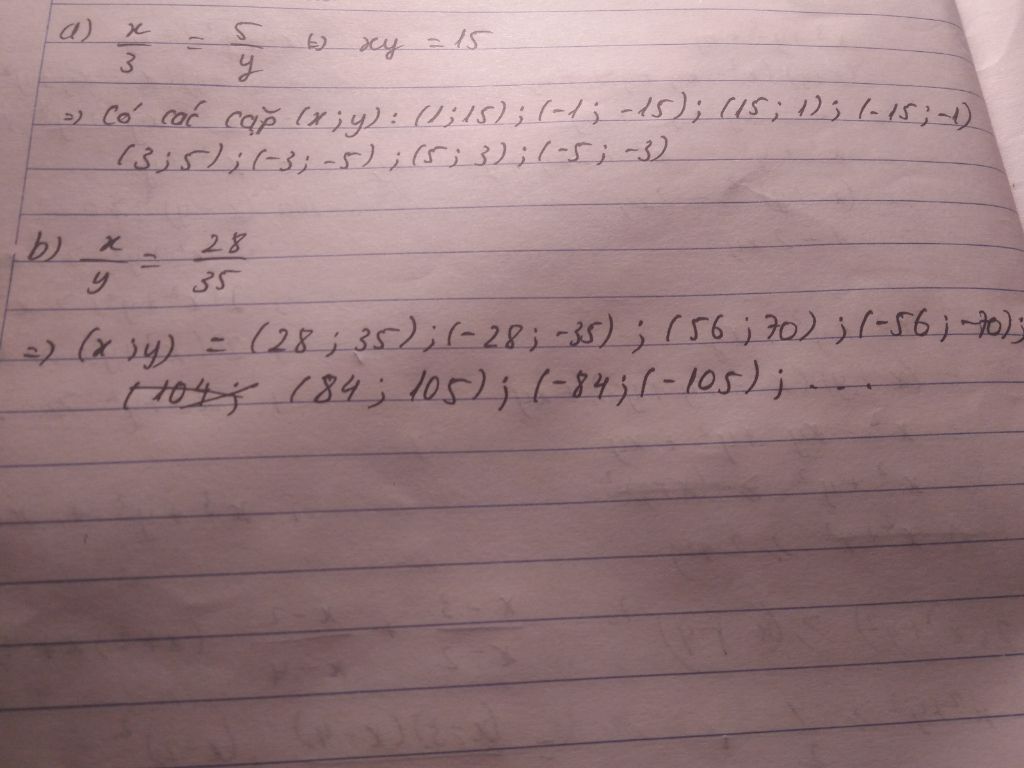 a) x/3 = 5/y ⇔ xy = 15
=> Có các cặp (x;y): (1;15); (-1; -15); (15; 1); (-15; -1)
(3; 5); (-3; -5); (5; 3); (-5; -3)
b) x/y = 28/35
=> (x;y) = (28; 35); (-28; -35); (56; 70); (-56; -70);
(104; (84; 105); (-84; (-105); ....